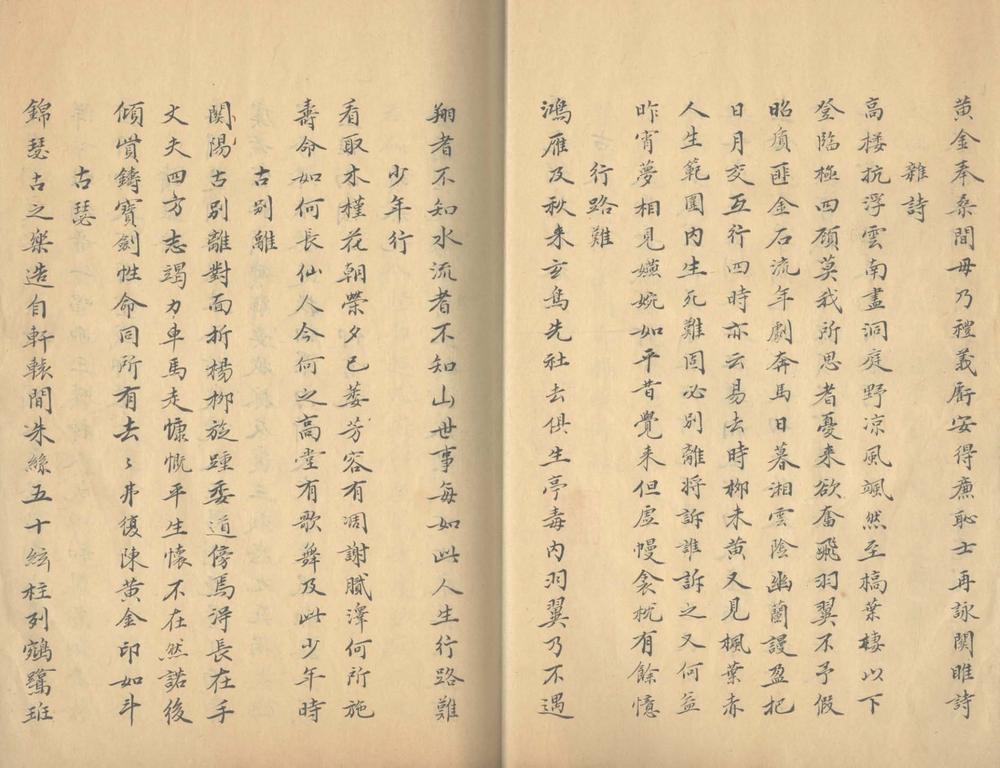 黄金奉桑間毋乃禮義廝安得廉恥士再詠関雎詩
雜詩
高楼抗浮雲南盡洞庭野凉風颯然至槁葉棲以下
登臨極四顾莫我所思者憂来欲奮飛羽翼不予假
昭質匪金石流年劇奔馬日暮湘雲陰幽蘭謾盈把
日月交五行四時亦云易去時柳未黄又見楓葉赤
人生範圍内生死難固必別離将訴誰訴之又何益
昨宵夢相見嬿婉如平昔覺来但虚幔衾枕有餘憶
行路難
鴻雁及秋来玄鳥先社去俱生亭毒内羽翼乃不遇
翔者不知水流者不知山世事每如此人生行路難
少年行
看取木槿花朝榮夕已萎芳容有凋謝膩澤何所施
壽命如何長仙人今何之高堂有歌舞及此少年時
古別離
関陽古別離對面折楊柳旋踵委道傍焉得長在手
丈夫四方志竭力車馬走慷慨平生懷不在然諾後
傾貲鑄寶劍性命同所有去〻弗復陳黄金印如斗
古瑟
錦瑟古之樂造自軒轅間洙絲五十絃柱列鵷鷺班